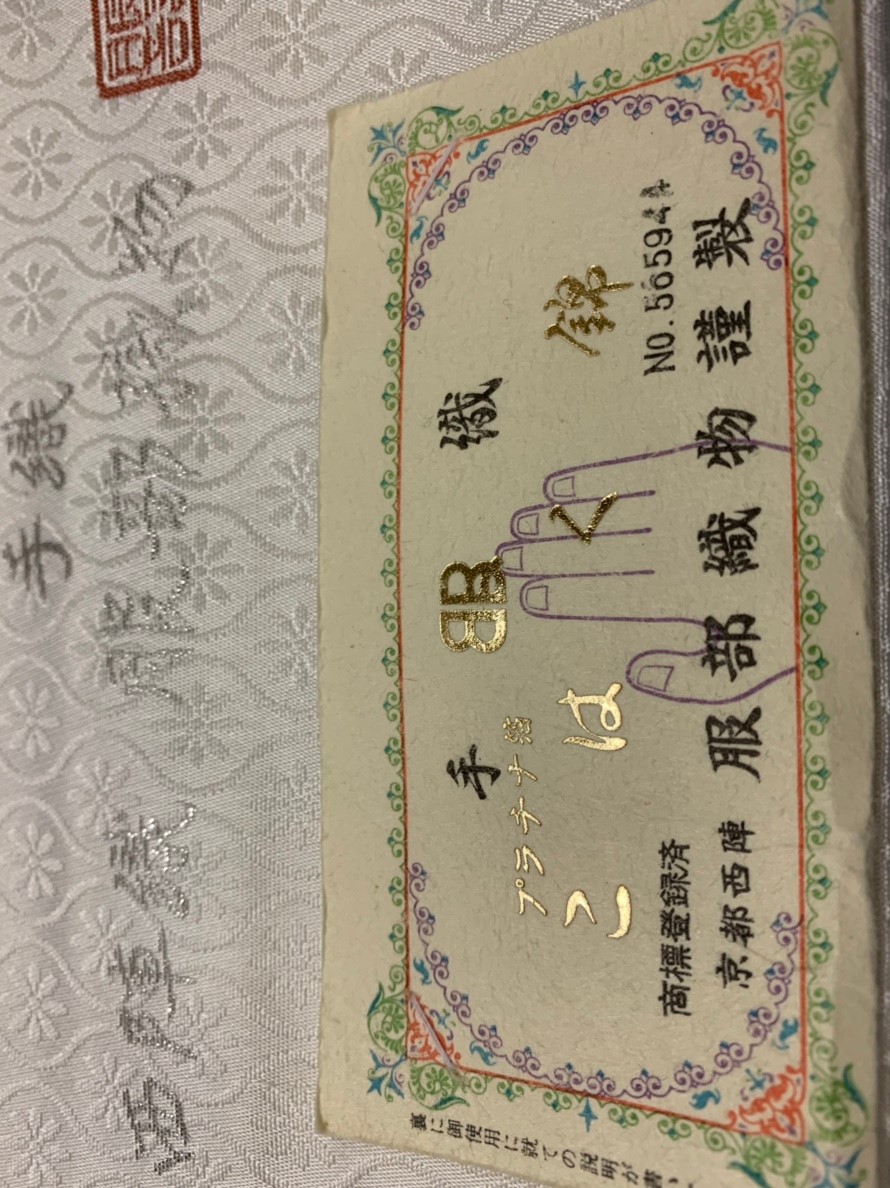 手織
西陣織 服部織物
手 織
プラチナ箔
こはく錦
商標登録済 No.565944
京都西陣 服部織物謹製
裏に御使用に就ての説明が書